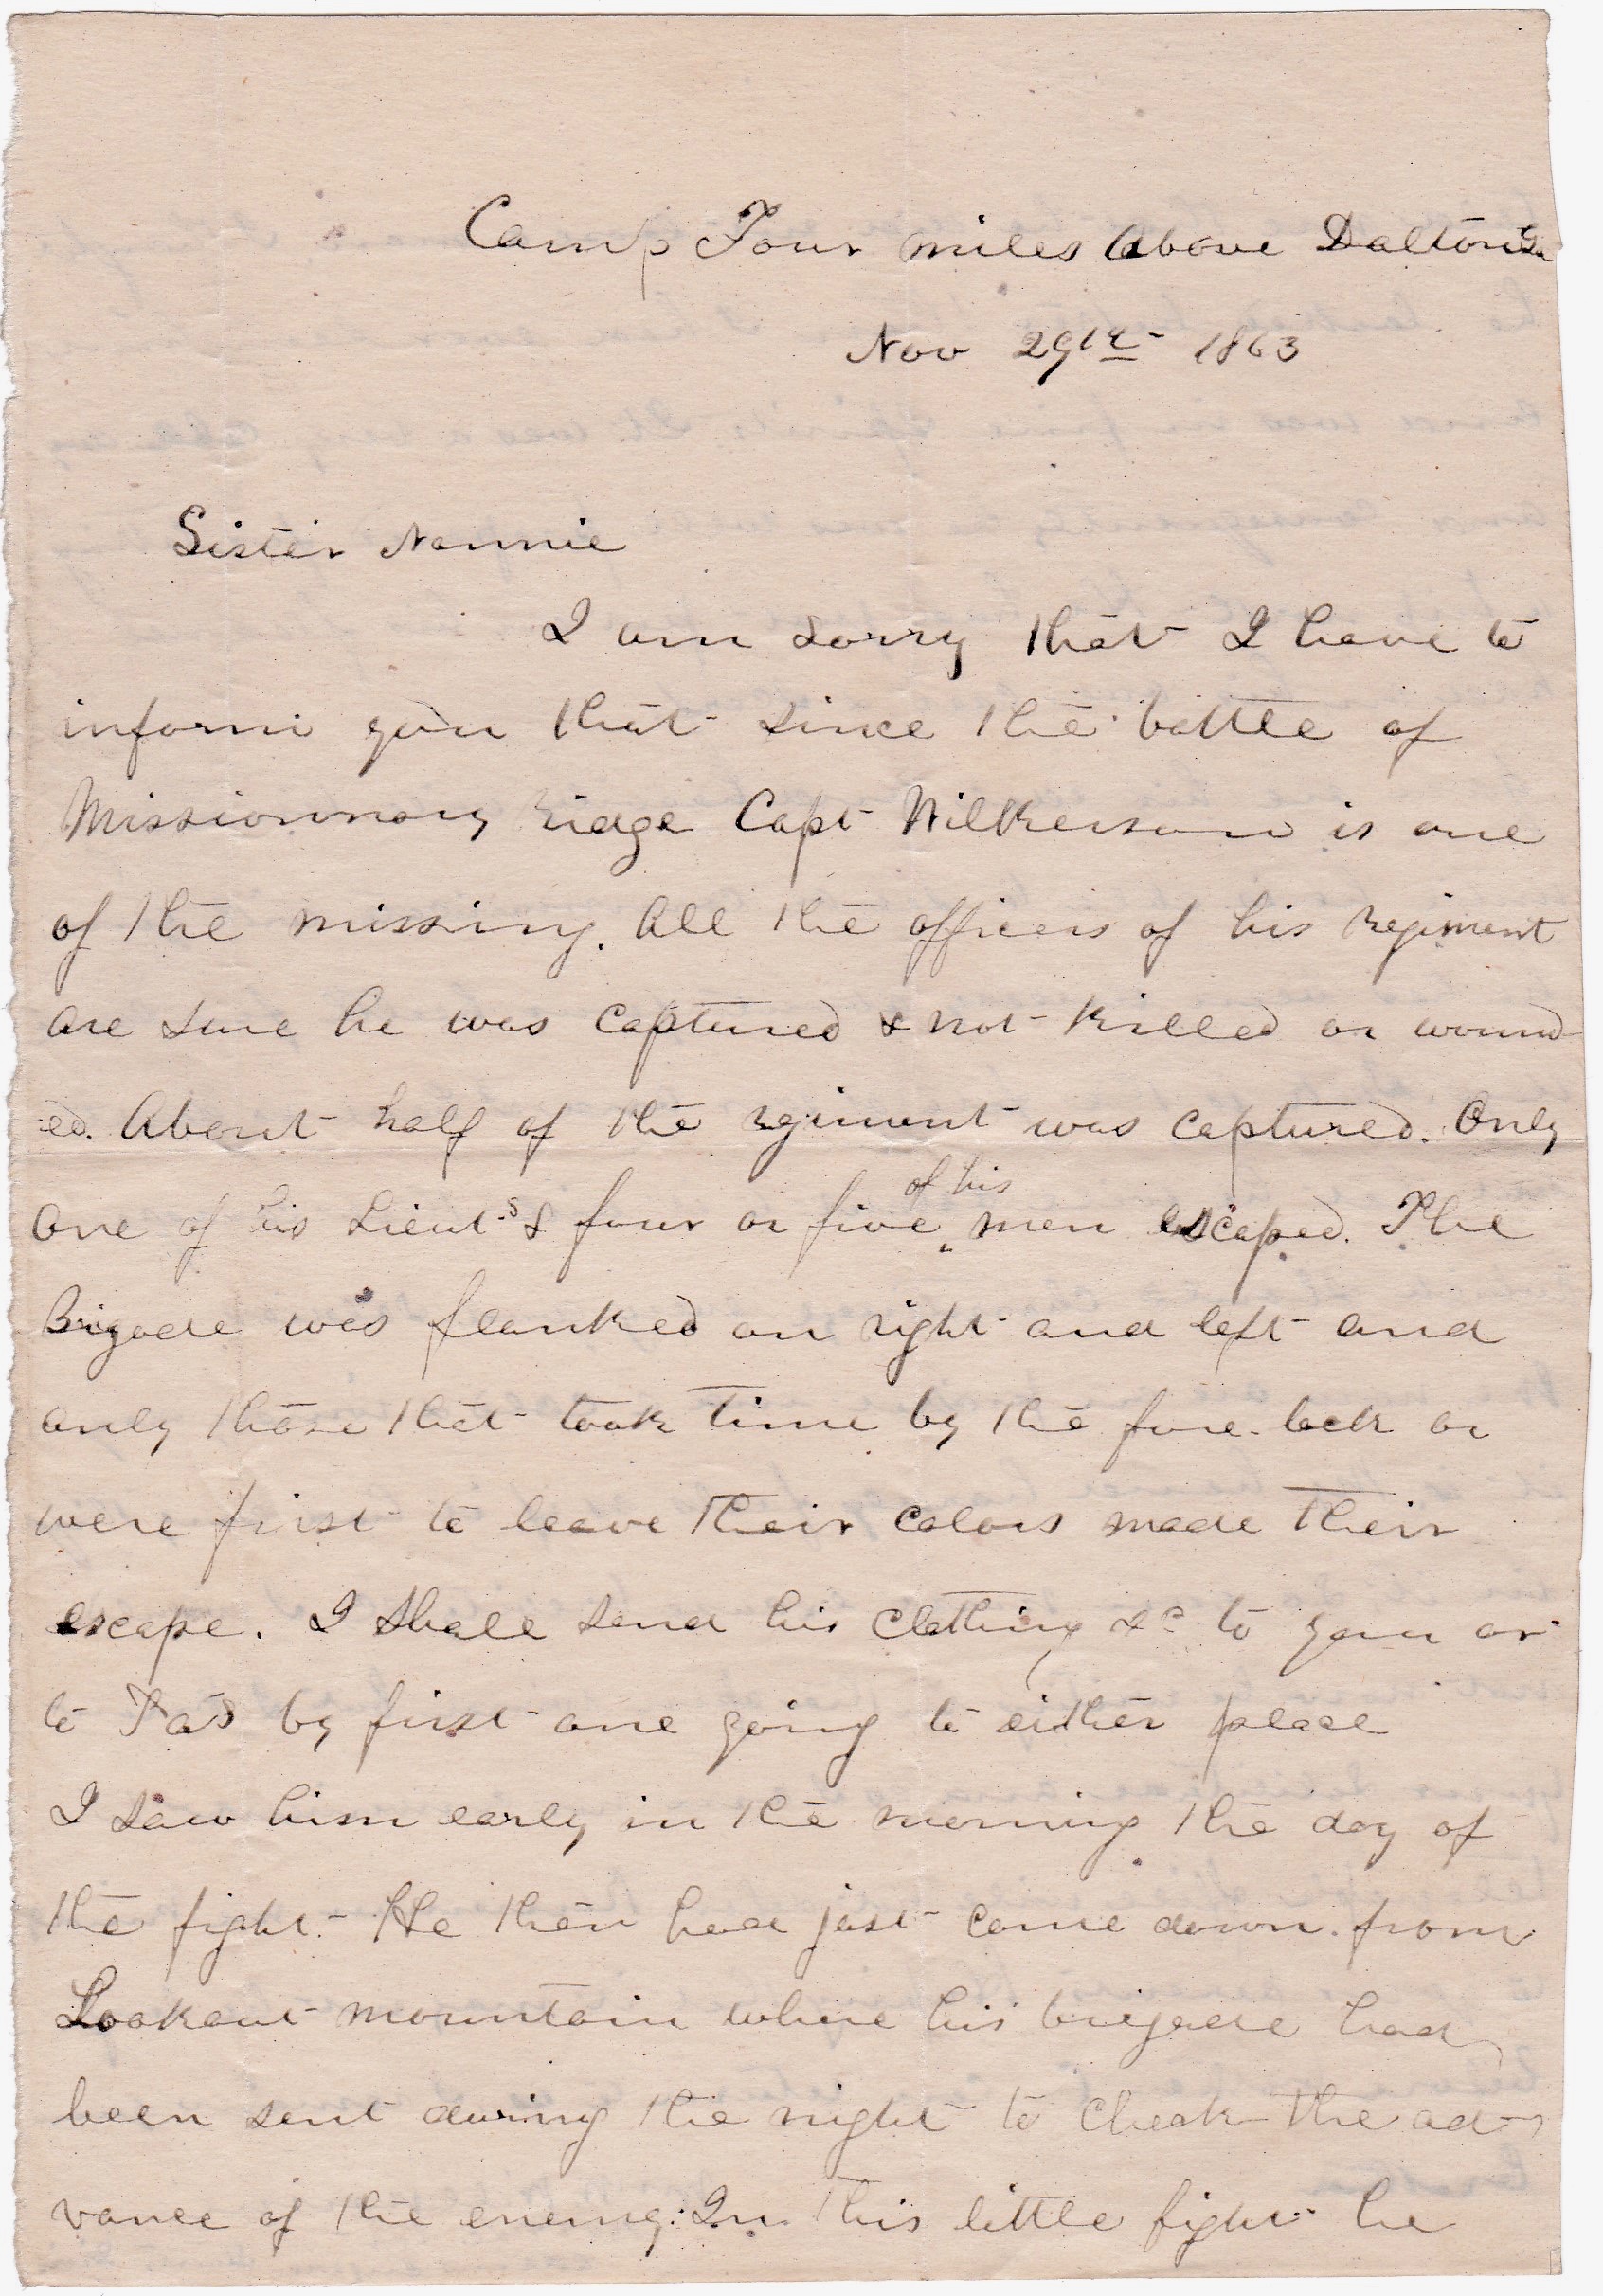 Camp Four miles above Dalton Ga
Nov 29th 1863
Sister Nannie
I am sorry that I have to
inform you that since the battle of
Missionnary ridge Capt Wilkerson is one
of the missing. All the officers of his regiment
are sure he was captured & not killed or wound
ed. About half of the regiment was captured. Only
one of his Lieut.s & four or five of his men escaped. The
Brigade was flanked on right and left and
only those that took time by the fore-lock or
were first to leave their colors made their
escape. I shall send his clothing &c to you or
to Pa's by first one going to either place
I saw him early in the morning the day of
the fight. He then had just come down from
Lookout mountain where his brigade had
been sent during the night to check the ad-
vance of the enemy. In this little fight he